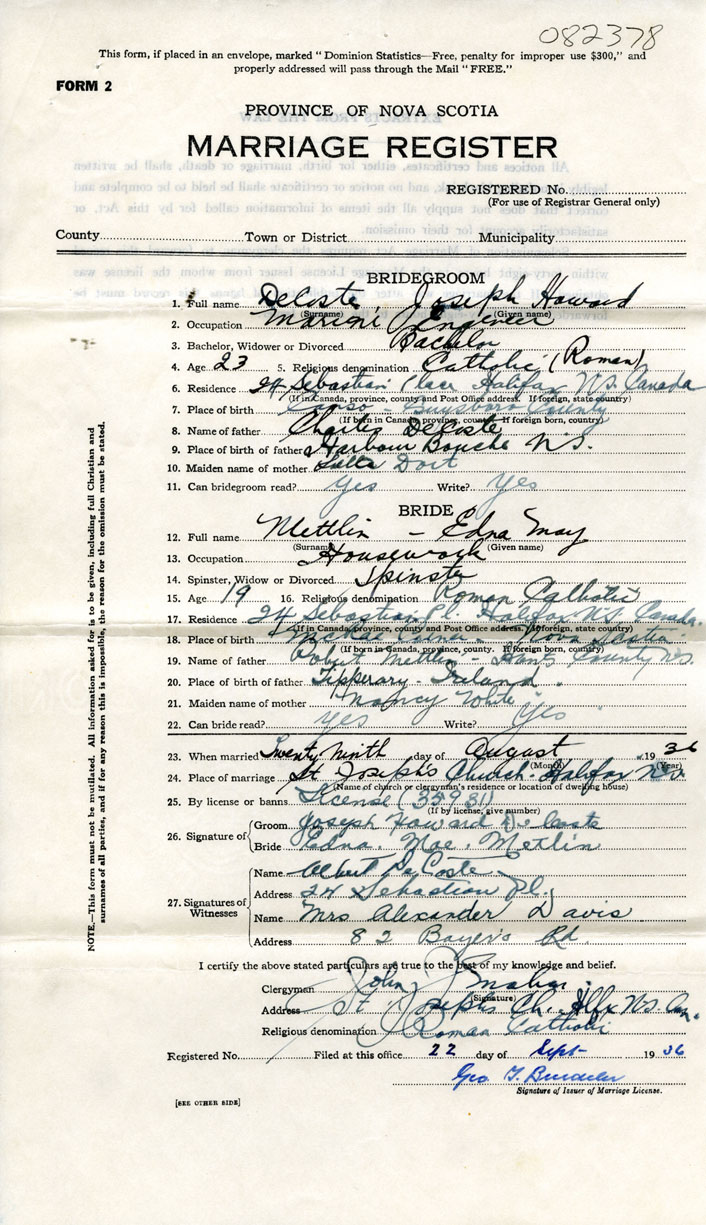 082378
This form, if placed in an envelope, marked "Dominion Statistics—Free, penalty for improper use $300," and
properly addressed will pass through the Mail "FREE."
FORM 2
PROVINCE OF NOVA SCOTIA
MARRIAGE REGISTER
REGISTERED No.
(For use of Registrar General only)
County Town or District Municipality
BRIDEGROOM
1. Full name DeCoste, Joseph Howard
(Surname) (Given name)
2. Occupation Marine Engineer
3. Bachelor, Widower or Divorced Bachelor
4. Age 23 5. Religious denomination Catholic (Roman)
6. Residence 24 Sebastian Place Halifax N.S. Canada
(If in Canada, province, county and Post Office address. If foreign, state country)
7. Place of birth Canso - Guysboro County
(If born in Canada, province, county. If foreign born, country)
8. Name of father Charles DeCoste
9. Place of birth of father Harbour Bouche N.S.
10. Maiden name of mother
11. Can bridegroom read? Yes Write? Yes
BRIDE
12. Full name Mettlin - Edna May
(Surname) (Given name)
13. Occupation Housework
14. Spinster, Widow or Divorced Spinster
15. Age 19 16. Religious denomination Roman Catholic
17. Residence 24 Sebastian Pl. Halifax N.S. Canada.
(If in Canada, province, county and Post Office address. If foreign, state country)
18. Place of birth Nova Scotia
(If born in Canada, province, county. If foreign born, country)
19. Name of father Robert Mettlin - Hants County N.S.
20. Place of birth of father Tipperary - Ireland.
21. Maiden name of mother Nancy White
22. Can bride read? Yes Write? Yes
23. When married Twenty Ninth day of August 1936
(Month) (Year)
24. Place of marriage St Joseph's Church - Halifax N.S.
(Name of church or clergyman's residence or location of dwelling house)
25. By license or banns License (35931)
(If by license, give number)
26. Signature of Groom Joseph Howard DeCoste
Bride Edna. Mae. Metlin
27. Signatures of Witnesses
Name Albert DeCoste
Address 24 Sebastian Pl.
Name Mrs Alexander Davis
Address 82 Bayers Rd.
I certify the above stated particulars are true to the best of my knowledge and belief.
Clergyman John J. Mahar
(Signature)
Address St Joseph's Ch. Hlfx N.S. Can.
Religious denomination Roman Catholic
Registered No. Filed at this office 22 day of Sept- 1936
Geo T.
Signature of Issuer of Marriage License.
[SEE OTHER SIDE]
NOTE,—This form must not be mutilated. All information asked for is to be given, including full Christian and
surnames of all parties, and if for any reason this is impossible, the reason for the omission must be stated.